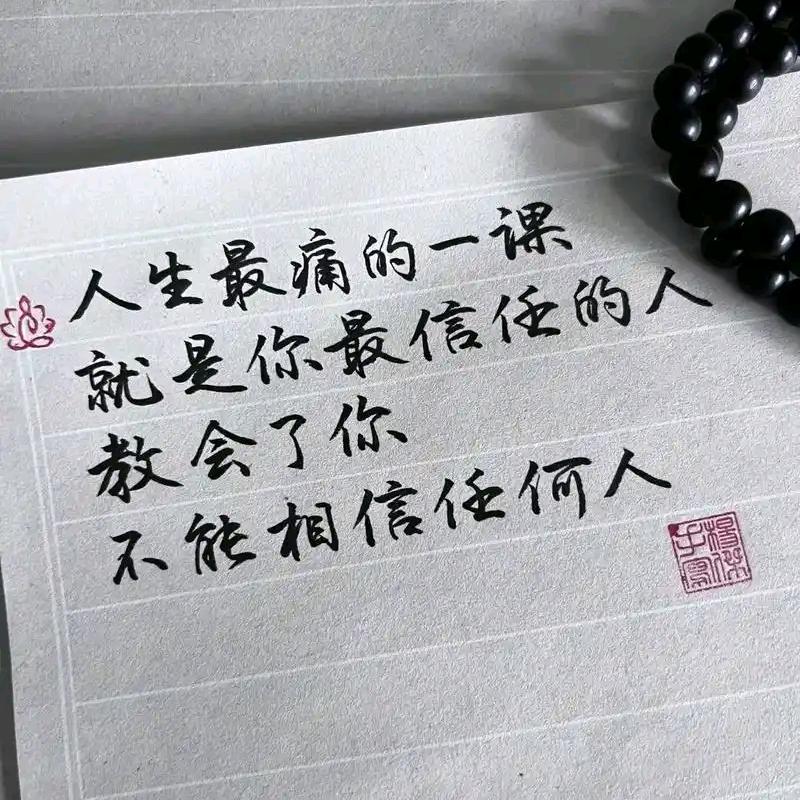 人生最痛的一课
就是你最信任的人
教会了你
不能相信任何人
杨杰手写